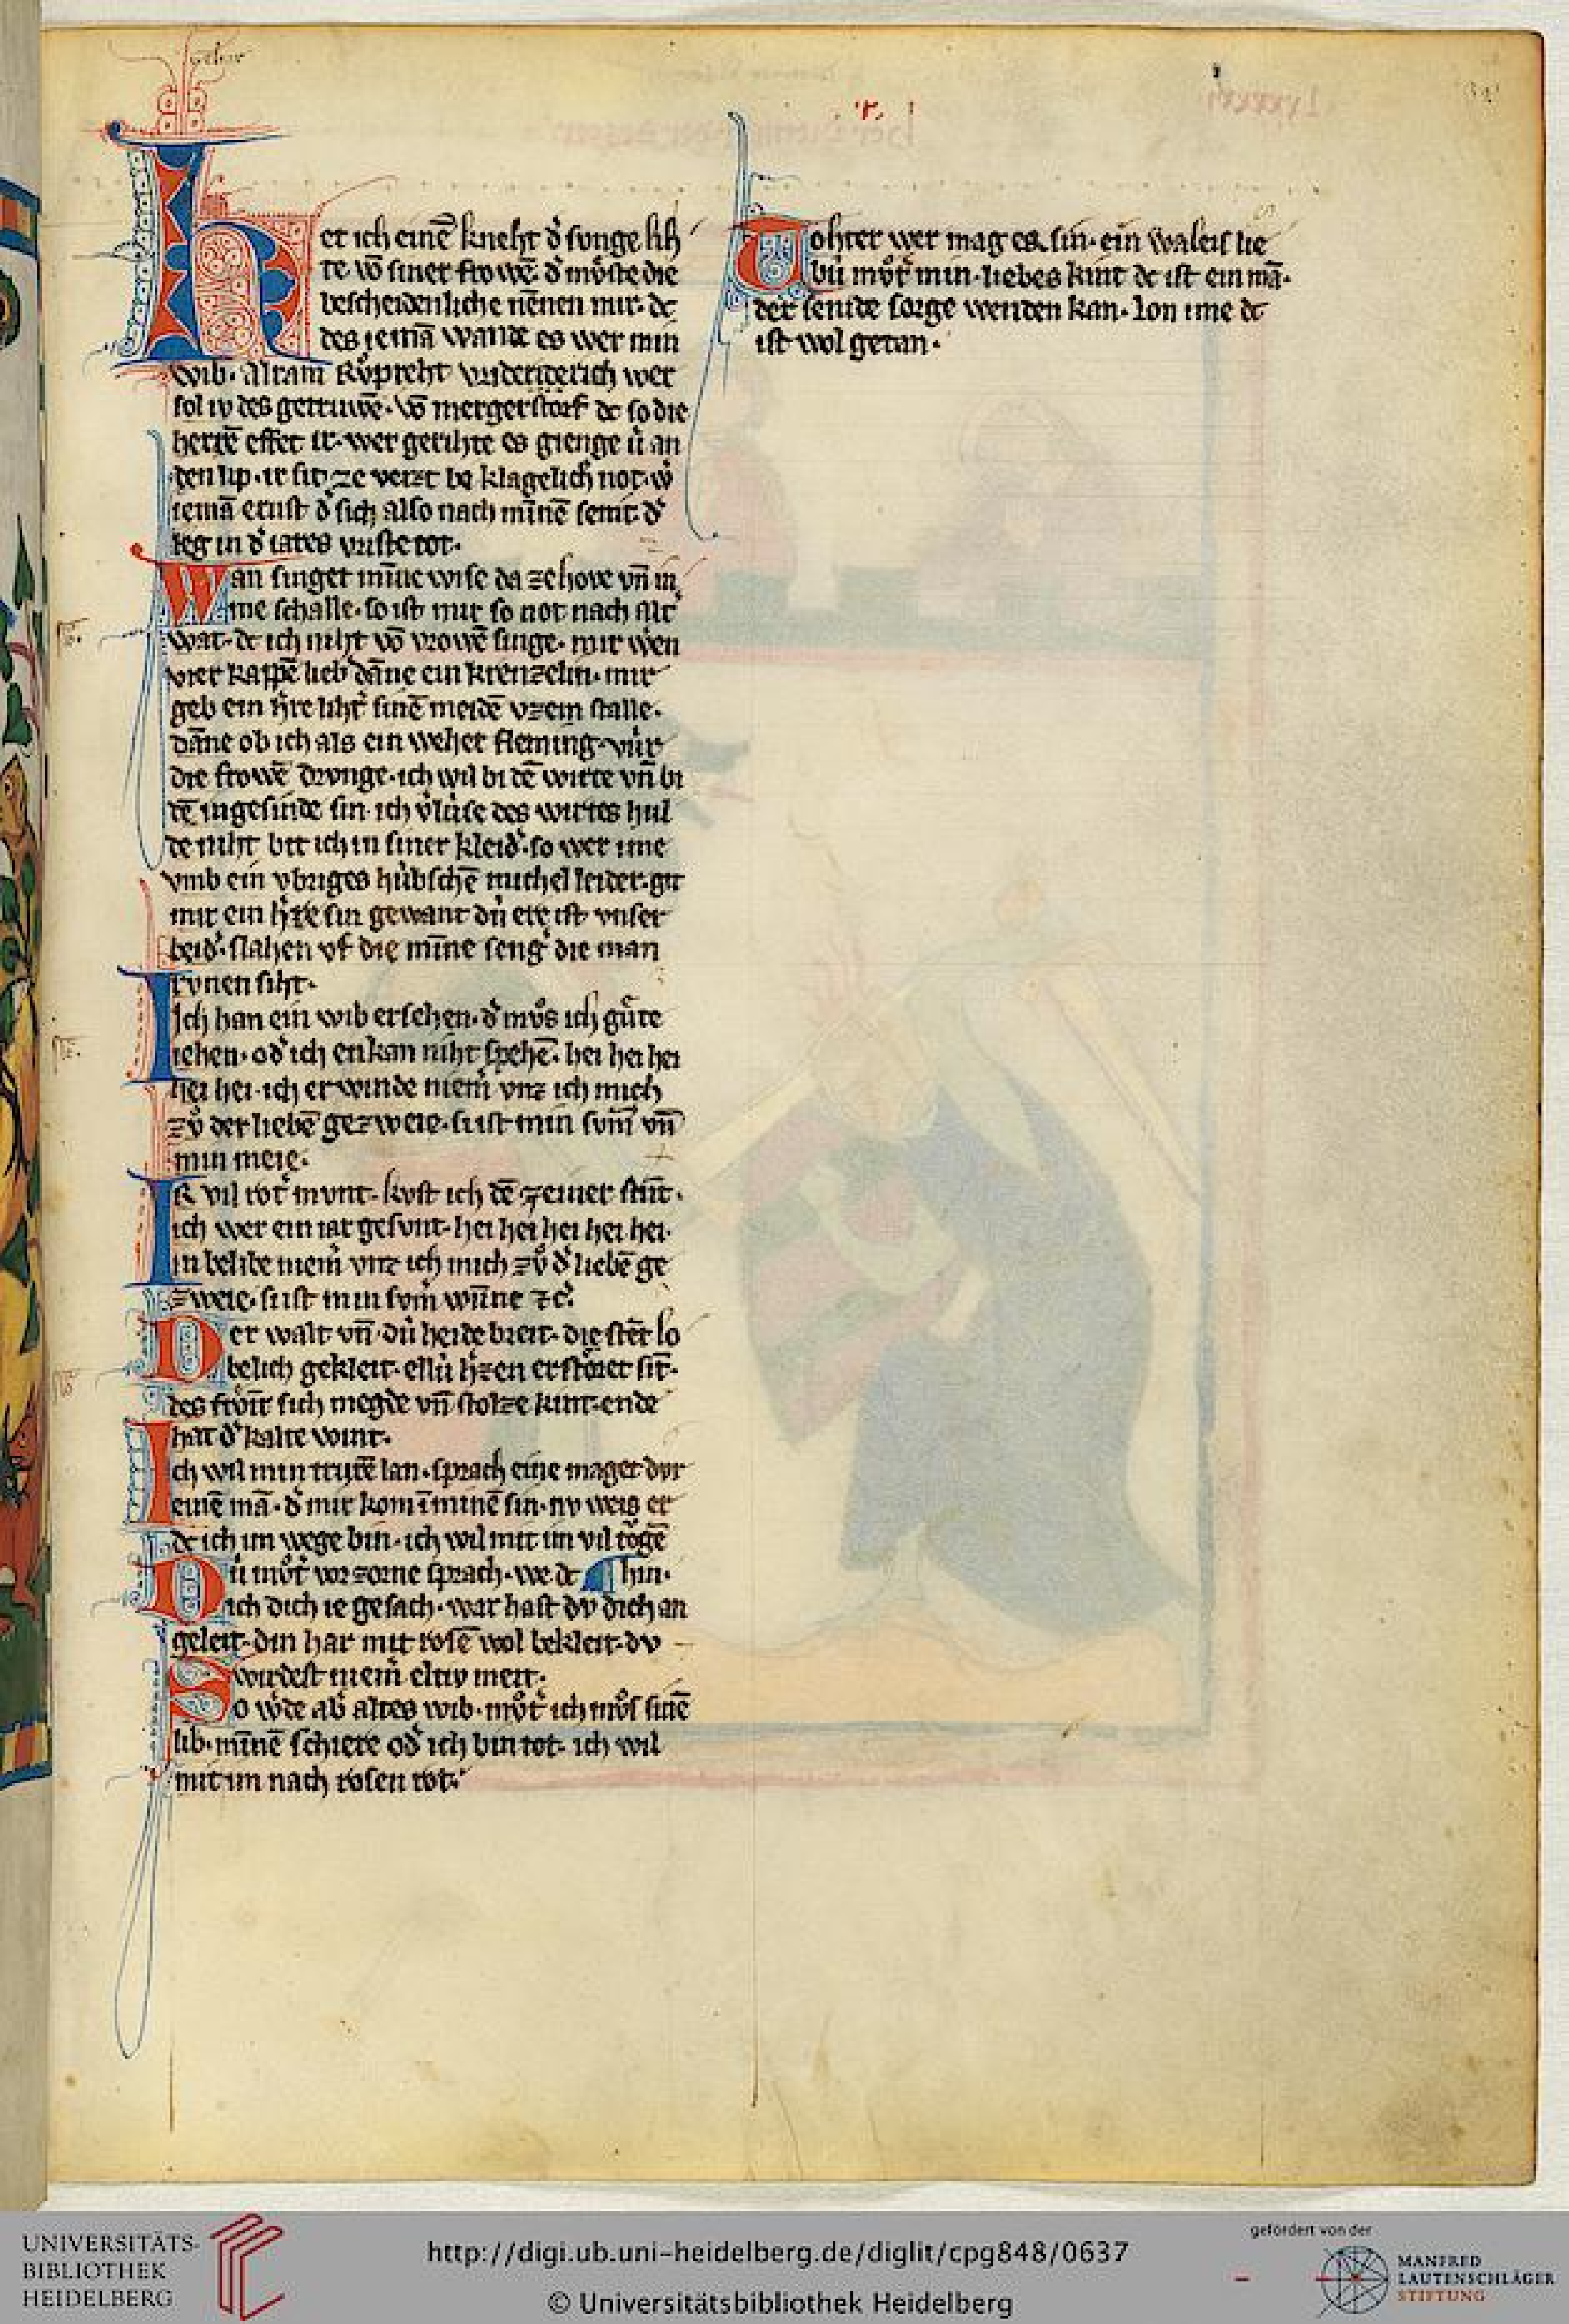 et ich einē kneht d͛ sunge lih
te vō siner frowē· d͛ mv̊ste die
bescheidenliche nēnen mir· dc
des iemā wande es wer min
wib· Alram Rv̊preht vriderich wer
sol iv des getruwē· vō mergerstorf dc so die
herrē effet ir· wer gerihte es gienge ú an
den lip· ir sit ze verzt ba klagelich not· w͛
iemā ernst d͛ sich also nach minnē senit· d͛
leg in d͛ iares vriste tot·
Wan singet minne wise da ze hove vn̄ in
me schalle· so ist mir so not nach alt͛
wat· dc ich niht vō vrowē singe· mir wen
vier kappē lieb͛ dāne ein krenzelin· mir
geb ein h͛re liht͛ sinē meidē vzem stalle·
dāne ob ich als ein weher fleming· vúr
die frowē drvnge· ich wil bi dē wirte vn̄ bi
dē ingesinde sin· ich v͛lúse des wirtes hul
de niht bit ich in siner kleid͛· so wer ime
vmb ein vbriges húbschē michel leider· git
mir ein h͛re sin gewant dú ere ist vnser
beid͛· slahen vf die minne seng͛ die man
rvnen siht·
Ich han ein wib ersehen· d͛ mv̊s ich gv̊te
iehen· od͛ ich enkan niht spehē· hei hei hei
hei hei· ich erwinde niem͛ vnz ich mich
zv̊ der liebē gezweie· sust min svm͛ vn̄
min meie·
Ir vil rot͛ mvnt· kvst ich dē zeiner stūt·
ich wer ein iar gesvnt· hei hei hei hei hei·
in belibe niem͛ vnz ich mich zv̊ d͛ liebē ge
zweie· sust min svm͛ wūne zc͛·
Der walt vn̄ dú heide breit· die stēt lo
belich gekleit· ellú h͛zen erstōret sit·
des frōit sich megde vn̄ stolze kint· ende
hat d͛ kalte wint·
Ich wil min trurē lan· sprach eine maget dvr
einē mā· d͛ mir kom ī minē sin· nv weis er
dc ich im wege bin· ich wil mit im vil tōgē
Dú mv̊t͛ vor zorne sprach· we dc ¶ hin·
ich dich ie gesach· war hast dv dich an
geleit· din har mit rosē wol bekleit· dv
wirdest niem͛ eltiv meit·
So w͛de ab͛ altes wib· mv̊t͛ ich mv̊s sinē
lib· minnē schiere od͛ ich bin tot· ich wil
mit im nach rosen rot·
Tohter wer mag es sin· ein waleis lie
bú mv̊t͛ min· liebes kint dc ist ein mā·
der sende sorge wenden kan· lon ime dc
ist wol getan·
UNIVERSITÄTS-
BIBLIOTHEK
HEIDELBERG
http://digi.ub.uni-heidelberg.de/diglit/cpg848/0637
© Universitätsbibliothek Heidelberg
gefördert von der
MANFRED
LAUTENSCHLÄGER
STIFTUNG